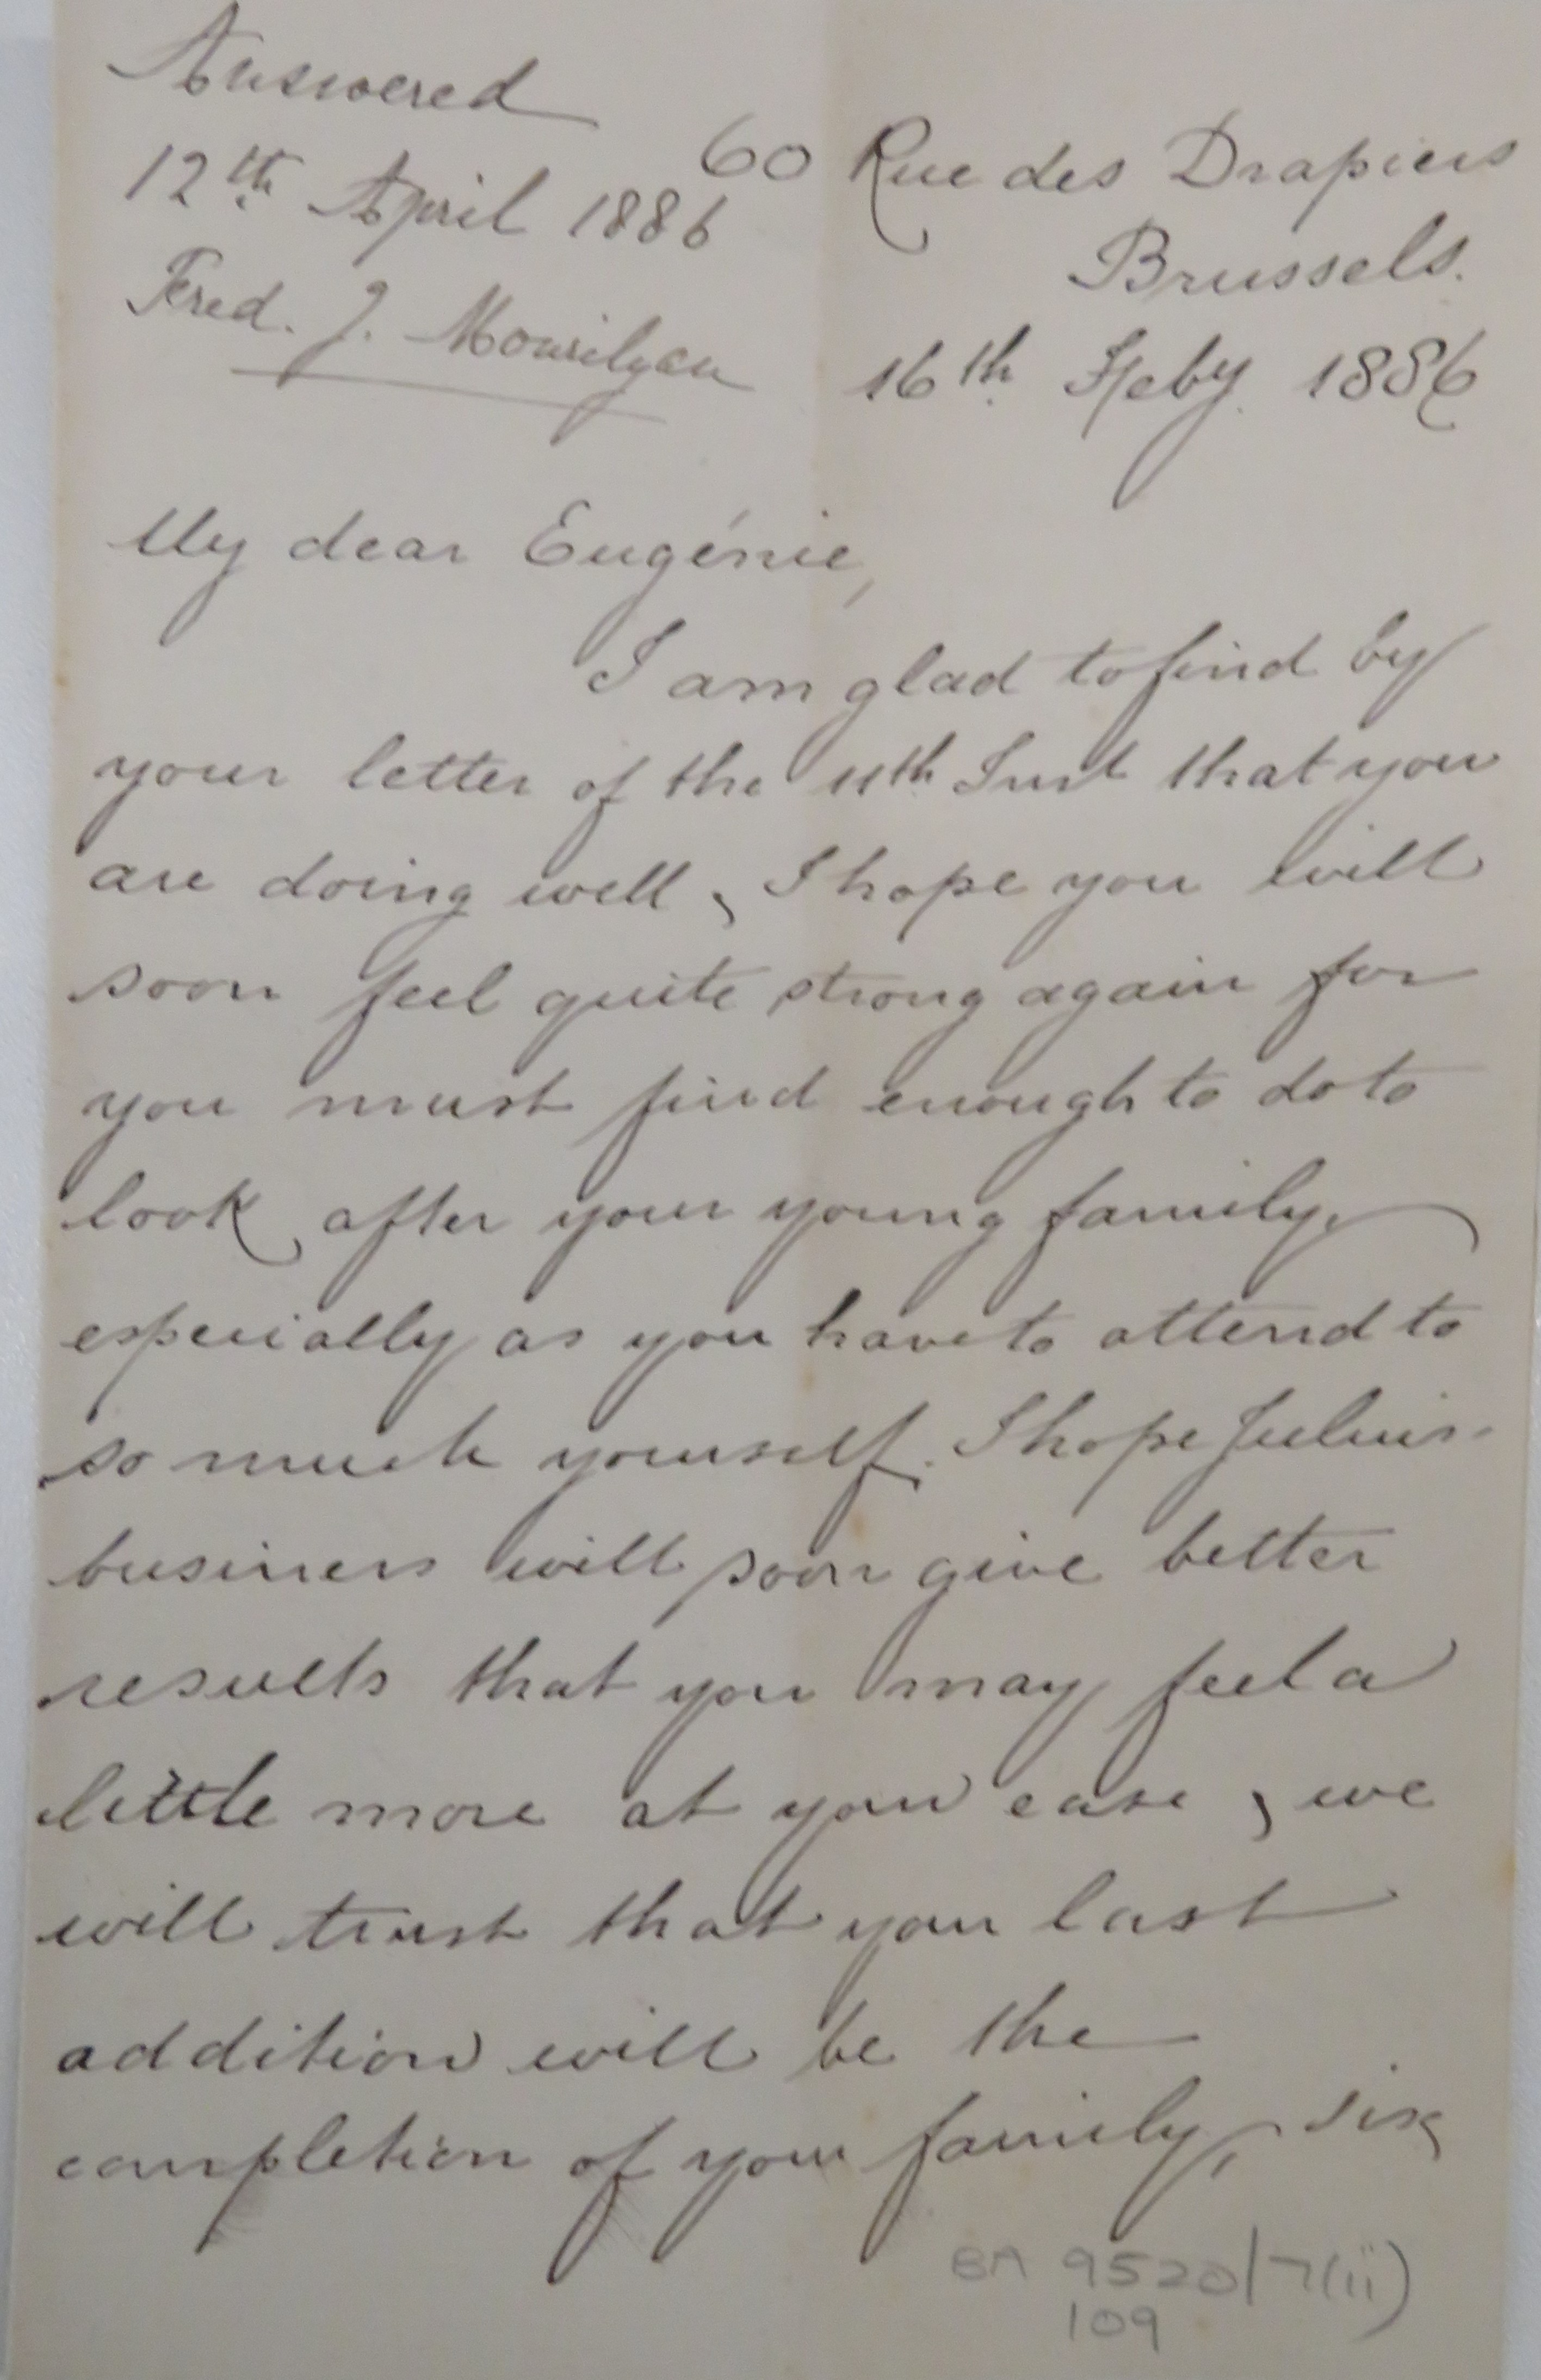 Answered
12th April 1886
Fred. J. Mourilyan
60 Rue des Drapiers
Brussels.
16th Feby. 1886
My dear Eugénie,
I am glad to find by
your letter of the 11th Inst that you
are doing well, I hope you will
soon feel quite strong again for
you must find enough to do to
look after your young family,
especially as you have to attend to
so much yourself. I hope Julius
business will soon give better
results that you may feel a
little more at your ease, we
will trust that your last
addition will be the
completion of your family, six
BA 9520/7(ii)
109